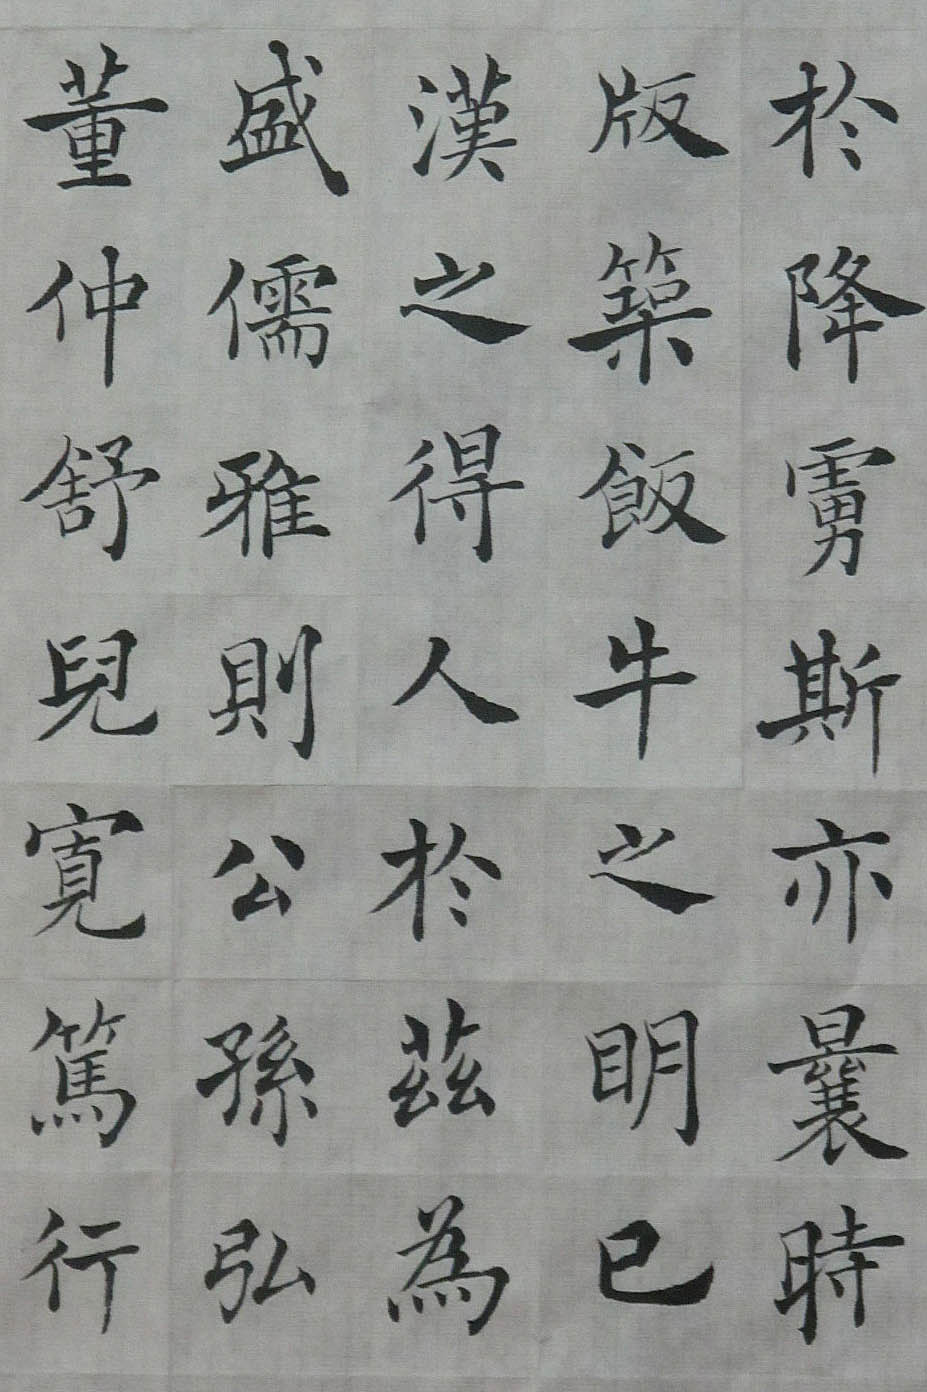 於降虜斯亦曩時
版築飯牛之明已
漢之得人於茲為
盛儒雅則公孫弘
董仲舒兒寬篤行